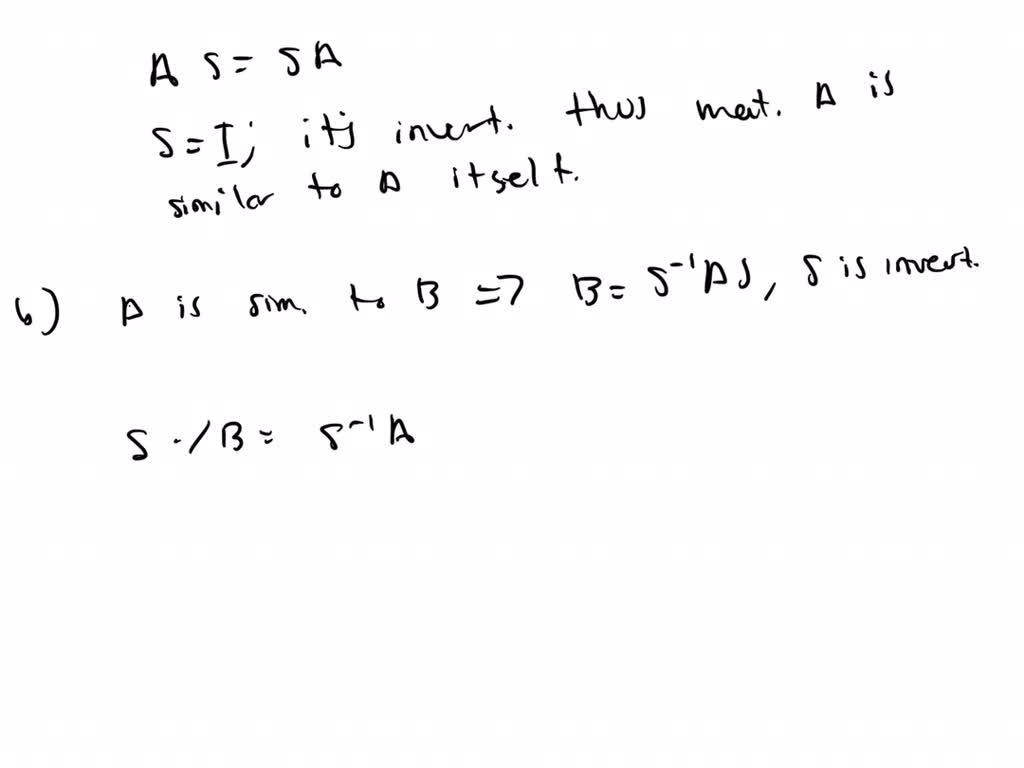 A S = S A
S = I; it's invert. thus mat. A is
similar to A itself.
b) A is sim. to B => B = S⁻¹AS, S is invert.
S ·/ B = S⁻¹A